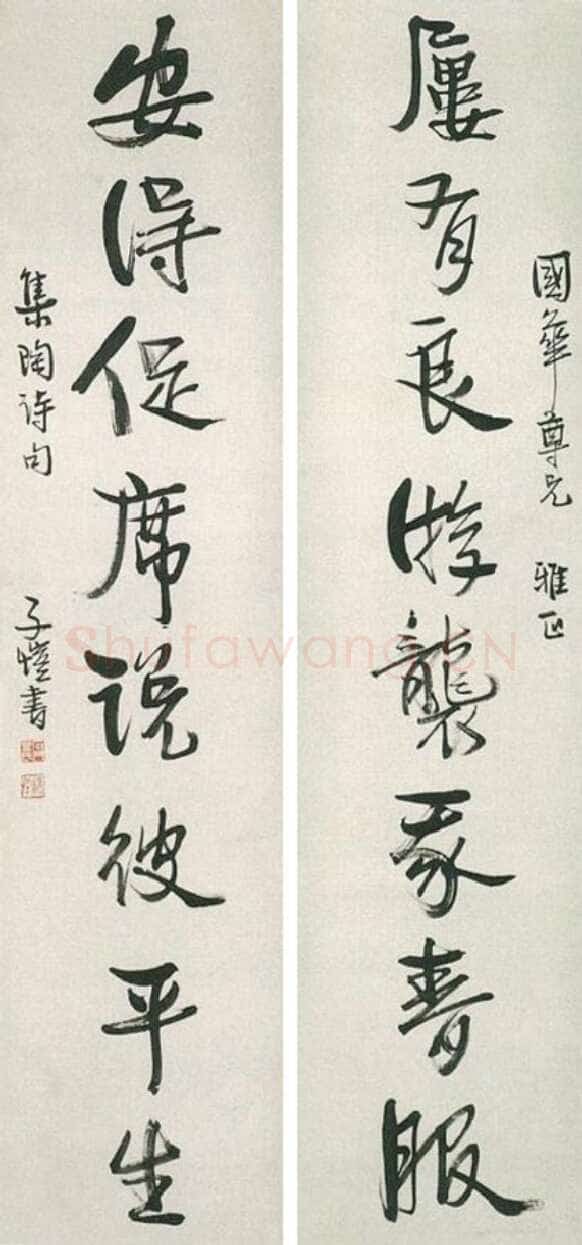 國華尊兄 雅正
屢有良游襲我春服
安得促席說彼平生
集陶詩句
子愷書
Shufawang.CN